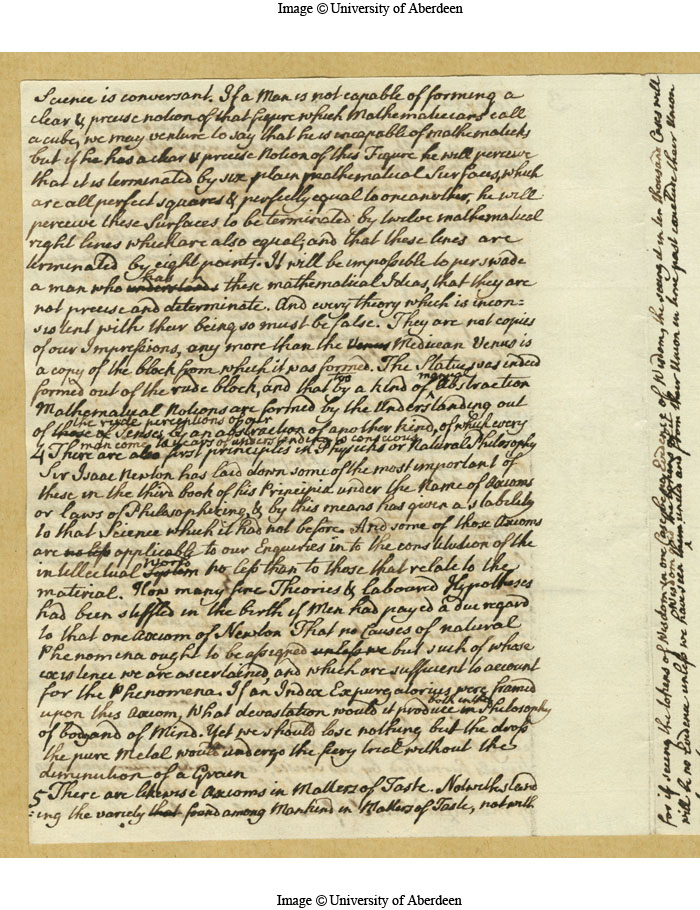 Image © University of Aberdeen
Science is conversant. If a Man is not capable of forming a
clear & precise notion of that figure which Mathematicians call
a cube, we may venture to say that he is incapable of mathematicks
but if he has a clear & precise Notion of this Figure he will perceive
that it is terminated by six plain mathematical Surfaces, which
are all perfect squares & perfectly equal to one another, he will
perceive these Surfaces to be terminated by twelve mathematical
right lines which are also equal; and that these lines are
terminated by eight points. It will be impossible to perswade
a man who understands has these mathematical Ideas, that they are
not precise and determinate. And every theory which is incon=
sistent with their being so must be false. They are not copies
of our Impressions, any more than the Venus Medicean Venus is
a copy of the block from which it was formed. The Statue was indeed
formed out of the rude block, and that by a kind of manual Abstraction
Mathematical Notions are formed by the Understanding out
of the rude perceptions of our Senses by an abstraction of another kind, of which every
man come to years of understanding is conscious
4 There are also first principles in Physicks or Natural Philosophy
Sir Isaac Newton has laid down some of the most important of
these in the third book of his Principia under the Name of Axioms
or laws of Philosophizing, & by this means has given a stability
to that Science which it had not before. And some of those Axioms
are no less applicable to our Enquiries into the constitution of the
intellectual System world no less than to those that relate to the
material. How many fine Theories & laboured Hypotheses
had been stiffled in the birth if Men had payed a due regard
to that one Axiom of Newton That no Causes of natural
Phenomena ought to be assigned unless we but such of whose
existence we are ascertained, and which are sufficient to account
for the Phenomena. If an Index Expurgatorius were framed
upon this Axiom, what devastation would it produce both in the Philosophy
of body and of Mind. Yet we should lose nothing but the dross
the pure Metal would undergo the fiery trial without the
diminution of a Grain
5 There are likewise Axioms in Matters of Taste. Notwithstand
=ing the variety that found among Mankind in Matters of Taste, not with
For if seeing the tokens of Wisdom in one Case be no Evidence of Wisdom, the seeing it in ten thousand Cases will
will be no Evidence unless we have seen Wisdom and the tokens of them united and from their Union in time past conclude their Union
Image © University of Aberdeen